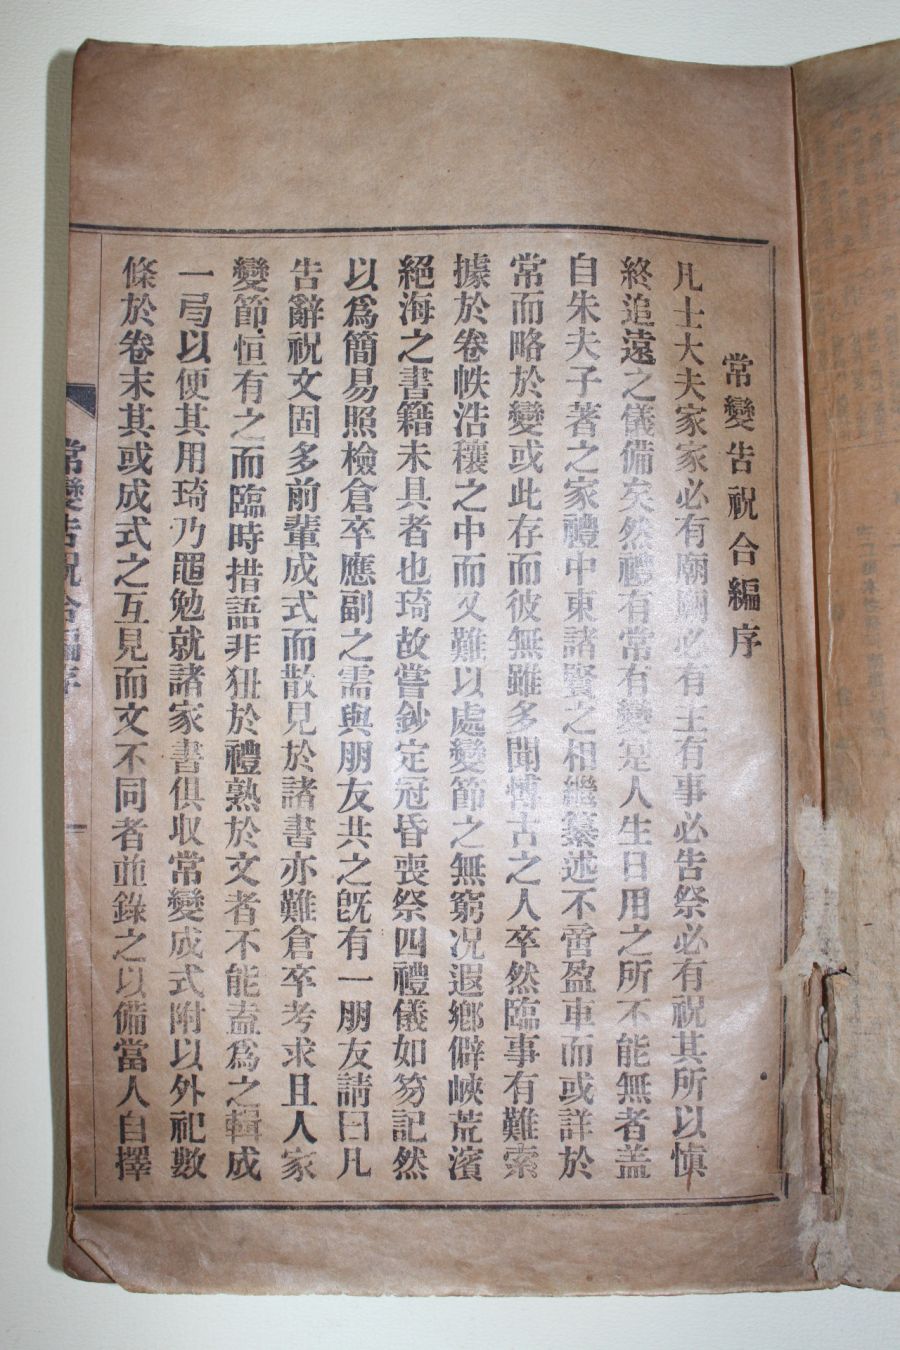 常變告祝合編序
凡士大夫家家必有廟廟必有主有事必告祭必有祝其所以愼
終追遠之儀備矣然禮有常有變寔人生日用之所不能無者盖
自朱夫子著之家禮中東諸賢之相繼纂述不啻盈車而或詳於
常而略於變或此存而彼無雖多聞博古之人卒然臨事有難索
據於卷帙浩穰之中而又難以處變節之無窮况遐鄕僻峽荒濱
絕海之書籍未具者也琦故嘗鈔定冠昏喪祭四禮儀如笏記然
以爲簡易照檢倉卒應副之需與朋友共之旣有一朋友請曰凡
告辭祝文固多前輩成式而散見於諸書亦難倉卒考求且人家
變節恒有之而臨時措語非狃於禮熟於文者不能盍爲之輯成
一局以便其用琦乃黽勉就諸家書俱収常變成式附以外祀數
條於卷末其或成式之互見而文不同者並錄之以備當人自擇
常變告祝合編序
一